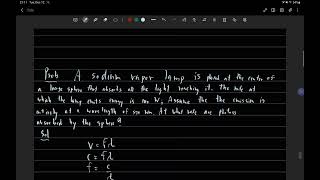 Prob A sodium vapor lamp is placed at the center of
a large sphere that absorbs all the light reaching it. The rate at
what the lamp emits energy is 100 W; Assume the the emission is
entirely at a wavelength of 590 nm. At what rate are photons
absorbed by the sphere?
Sol
v = fλ
c = fλ
f = c
λ